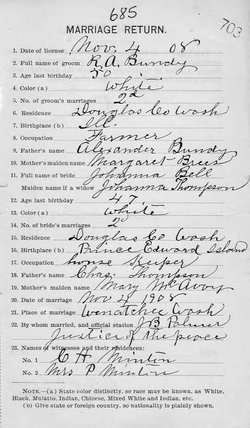 685
703
MARRIAGE RETURN.
1. Date of license Nov. 4 08
2. Full name of groom R. A. Bundy
3. Age last birthday 50
4. Color (a) White
5. No. of groom's marriages 2d
6. Residence Douglas Co Wash
7. Birthplace (b)
8. Occupation Farmer
9. Father's name Alexander Bundy
10. Mother's maiden name Margaret Breese
11. Full name of bride Johanna Bell
Maiden name if a widow Johanna Thompson
12. Age last birthday 47
13. Color (a) White
14. No. of bride's marriages 2d
15. Residence Douglas Co Wash
16. Birthplace (b) Prince Edward Island
17. Occupation house Keeper
18. Father's name Chas. Thompson
19. Mother's maiden name Mary McAvoy
20. Date of marriage Nov 4, 1908
21. Place of marriage Wenatchee Wash
22. By whom married, and official station J B Palmer
Justice of the peace
23. Names of witnesses and their residences:
No. 1 C H Minton
No. 2 Mrs P Minton
NOTE.—(a) State color distinctly, so race may be known, as White,
Black, Mulatto, Indian, Chinese, Mixed White and Indian, etc.
(b) Give state or foreign country, so nationality is plainly shown.